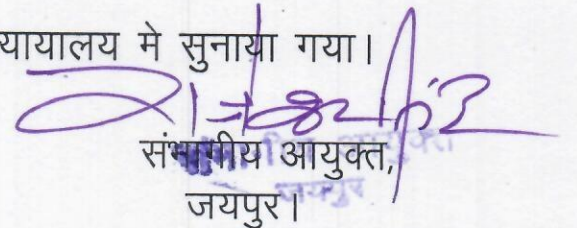 यायालय मे सुनाया गया।
संभागीय आयुक्त,
जयपुर।
जयपुर